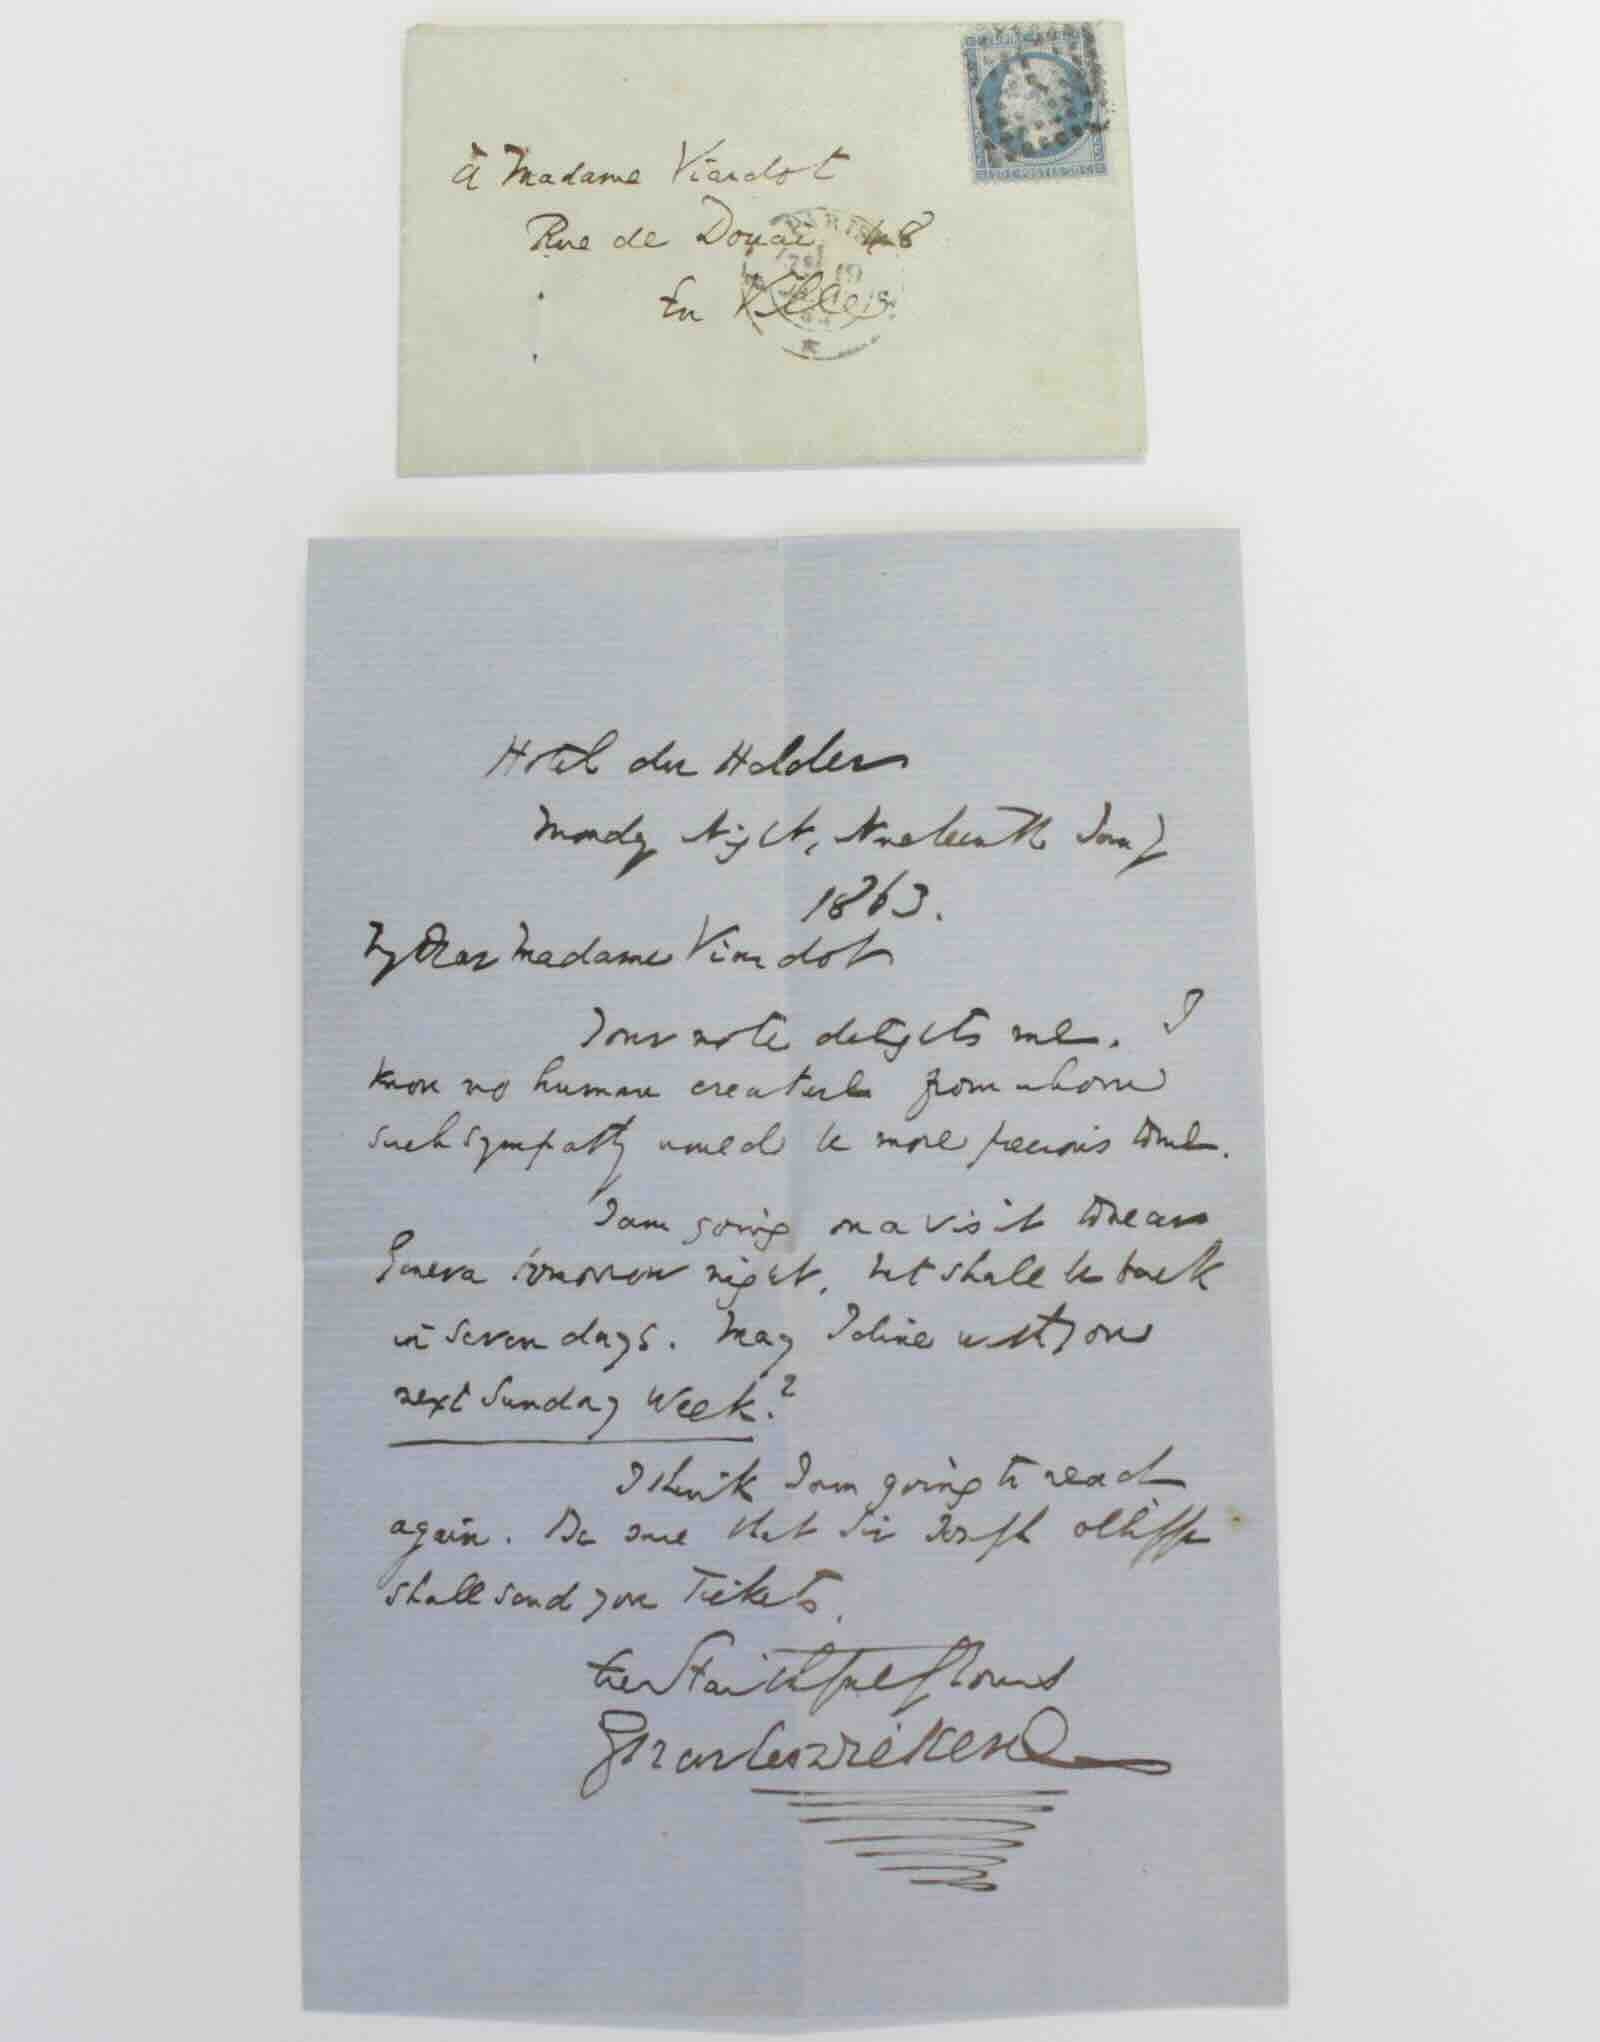 à Madame Viardot
Rue de Douai 48
PARIS
En Ville
Hotel du Helder
Monday Night, Nineteenth Jany
1863.
My Dear Madame Viardot
Your note delights me. I
know no human creature from whom
such sympathy would be more precious to me.
I am going on a visit to near
Geneva tomorrow night, but shall be back
in seven days. May I dine with you
next Sunday Week?
I think I am going to read
again. Be sure that Sir Joseph Olliffe
shall send you Tickets.
Ever Faithfully Yours
Charles Dickens